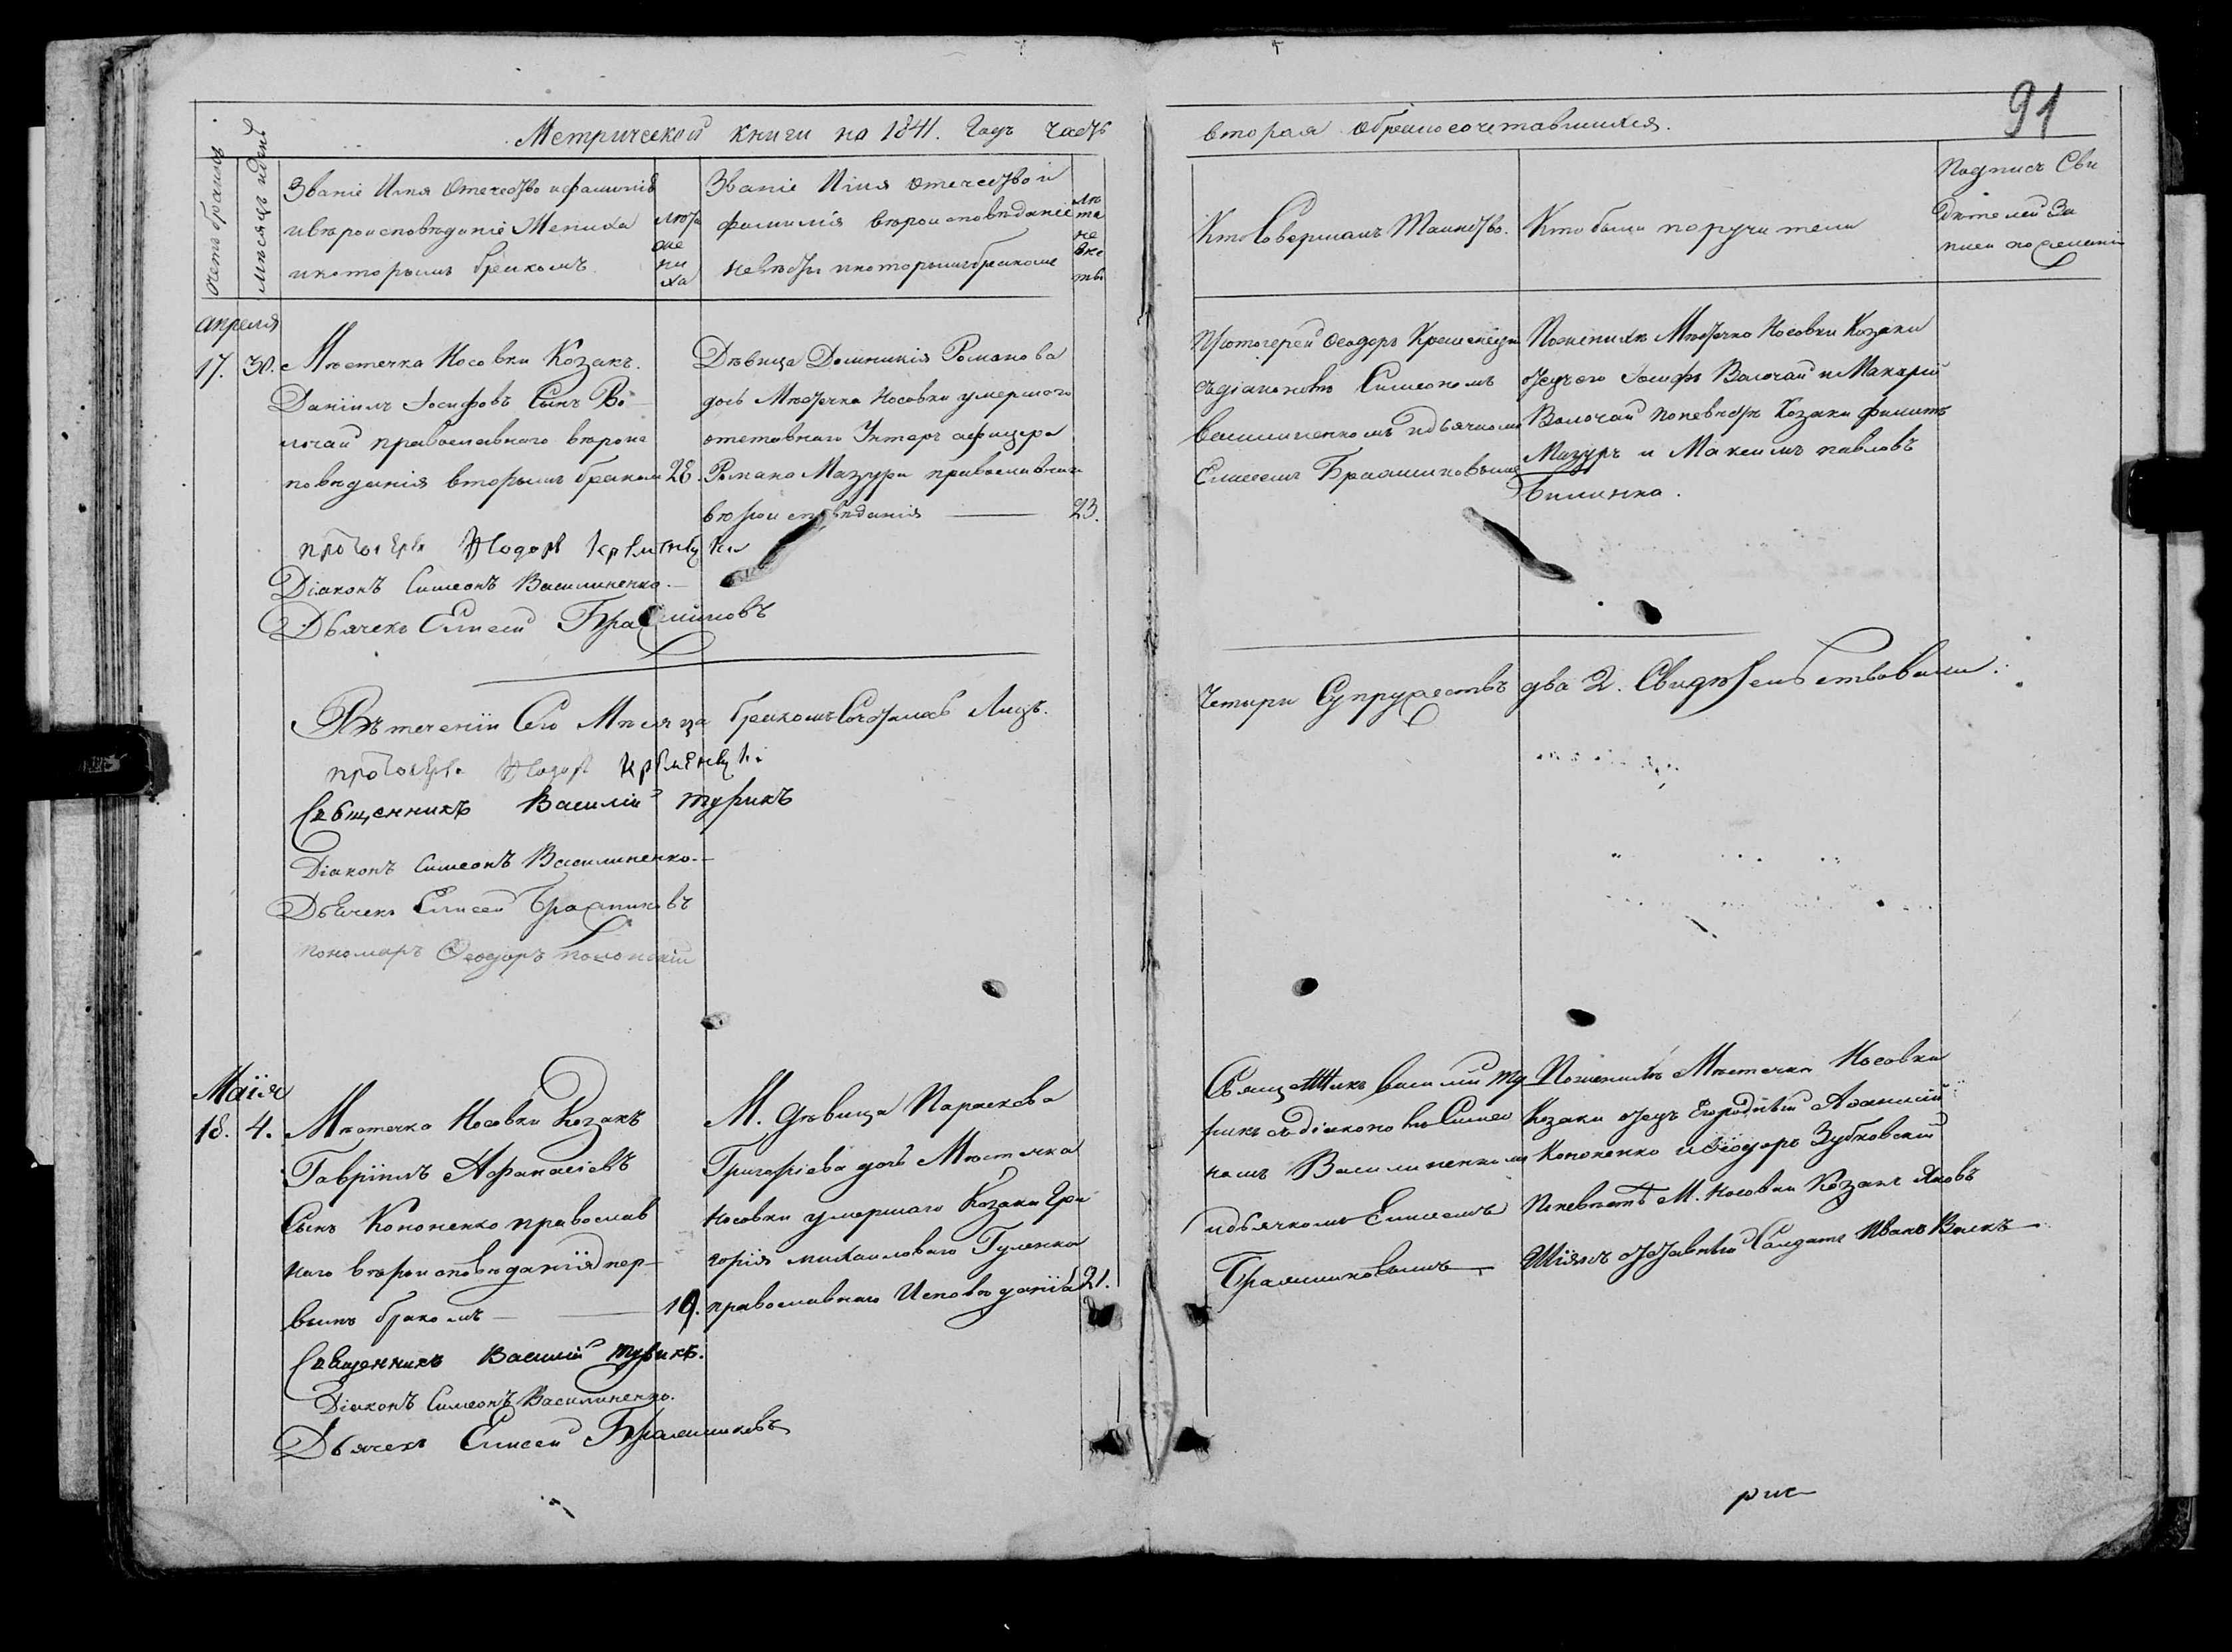 91
Метрической книги на 1841. Годъ часть
вторая о бракосочетавшихся.
Счетъ браковъ
Мѣсяцъ и день
Званіе Имя Отечество и фамилія
и вѣроисповѣданіе Жениха
и которымъ бракомъ
лѣта
же
ни
ха
Званіе Имя отечество и
фамилія вѣроисповѣданіе
невѣсты и которымъ бракомъ
лѣ
та
не
вѣс
ты
Кто Совершалъ Таинство.
Кто были поручители
Подпись Сви
дѣтелей За
писи по желанію
апреля
17. 30. Мѣстечка Носовки Козакъ
Даніилъ Іосифовъ Сынъ Во
лочай православнаго вѣроис
повѣданія вторымъ бракомъ 28.
Дѣвица Домникія Романова
дочь Мѣстечка Носовки умершого
отставнаго Унтеръ афицера
Романа Мазура православнаго
вѣроисповѣданія — 23.
Протоіерей Ѳеодоръ Кременецкі
съ діакономъ Симеономъ
Василиненкомъ и дьячкомъ
Елисеемъ Бражниковымъ
По женихѣ Мѣстечка Носовки Козаки
отецъ его Іосифъ Волочай и Макарій
Волочай по невѣстѣ Козаки Филипъ
Мазуръ и Максимъ павловъ
Билинка.
протоіерей Ѳеодоръ Кременецкі
Діаконъ Симеонъ Василиненко.
Дьячекъ Елисей Бражниковъ
Въ теченіи Сего Мѣсяца бракомъ Сочеталось Лицъ.
Четыри Супружествъ два 2. Свидѣтельствовали:
протоіерей Ѳеодоръ Кременецкі
Священникъ Василій Турикъ
Діаконъ Симеонъ Василиненко.
Дьячекъ Елисей Бражниковъ
пономаръ Ѳеодоръ Полонскій
Маія
18. 4. Мѣстечка Носовки Козакъ
Гавріилъ Афанасіевъ
Сынъ Кононенко православ
наго вѣроисповѣданія пер-
вымъ бракомъ — 19.
М. дѣвица Параскева
Григоріева дочь Мѣстечка
Носовки умершаго Козака Гри
горія михаиловаго Гуленка
православнаго Исповѣданія 21.
Священникъ василий Ту
рикъ съ діакономъ Симео
номъ Василиненкомъ
и дьячкомъ Елисеемъ
Бражниковымъ
По женихѣ Мѣстечка Носовки
Козаки отецъ Его родный Аѳанасій
Кононенко и Ѳеодоръ Зубковскій
По невѣстѣ М. Носовки Козакъ Яковъ
Шіянъ отставный Салдатъ Иванъ Вовкъ
Священникъ Василій Турикъ.
Діаконъ Симеонъ Василиненко.
Дьячекъ Елисей Бражниковъ